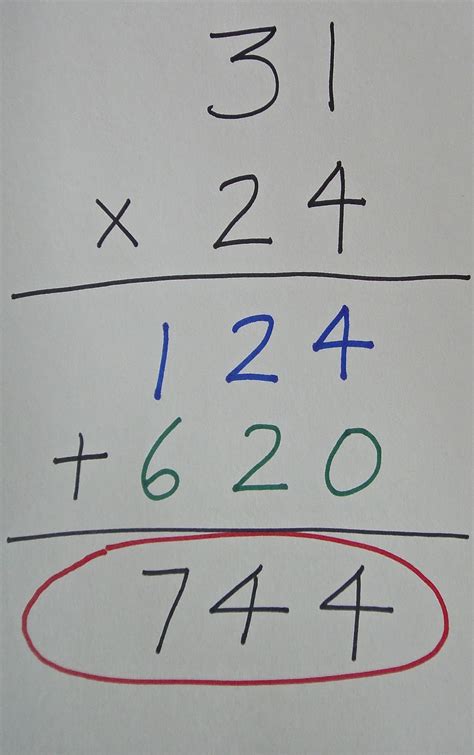 31
x 24
124
+ 620
744